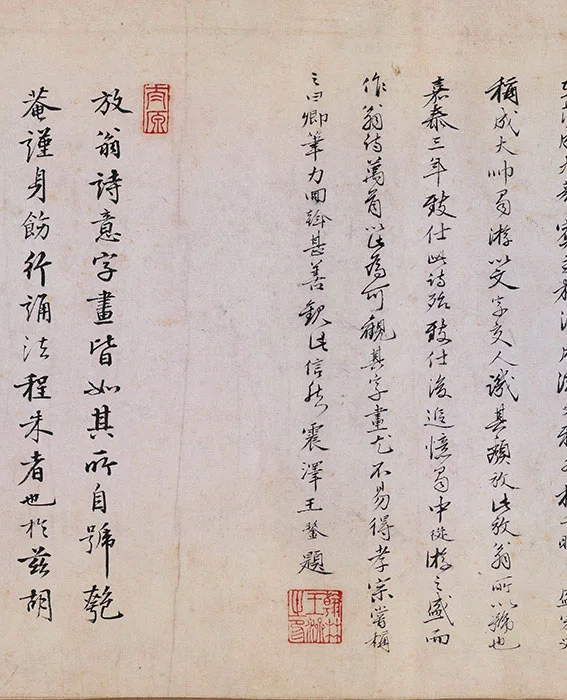 稱成大帥蜀游以文字交人譏其頹放此放翁所以號也
嘉泰三年致仕此詩殆致仕後追憶蜀中從游之盛而
作翁詩萬首以此為可觀其字畫尤不易得孝宗嘗稱
之曰卿筆力回斡甚善觀此信然震澤王鏊題
太原
放翁詩意字畫皆如其所自號匏
菴謹身飭行誦法程朱者也於茲胡